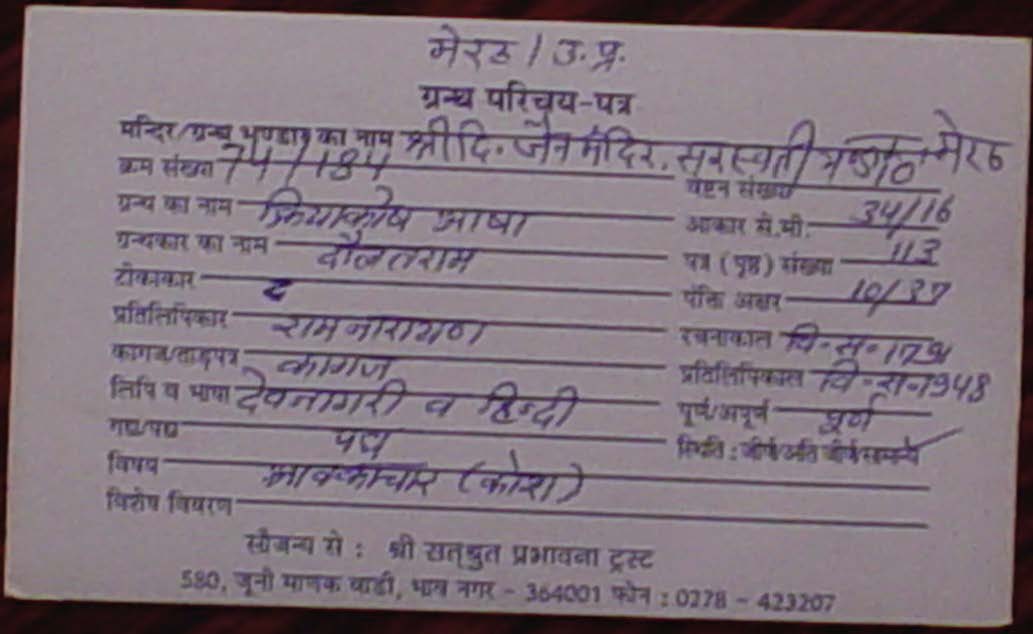 मेरठ / उ. प्र.
ग्रन्थ परिचय-पत्र
मन्दिर/ग्रन्थ भण्डार का नाम श्री दि. जैन मंदिर, सरस्वती भण्डार मेरठ
क्रम संख्या 74/184 वेष्टन संख्या
ग्रन्थ का नाम क्रियाकोष भाषा आकार से.मी. 34/16
ग्रन्थकार का नाम दौलतराम पत्र (पृष्ठ) संख्या 113
टीकाकार पंक्ति अक्षर 10/37
प्रतिलिपिकार रामनारायण रचनाकाल वि-स-
कागज/ताड़पत्र कागज प्रतिलिपिकाल वि-स-1948
लिपि व भाषा देवनागरी व हिन्दी पूर्ण/अपूर्ण पूर्ण
गद्य/पद्य पद्य स्थिति : जीर्ण/अति जीर्ण/सामान्य
विषय श्रावकाचार (कोश)
विशेष विवरण
सौजन्य से : श्री सत्श्रुत प्रभावना ट्रस्ट
580, जूनी माणक वाडी, भाव नगर - 364001 फोन : 0278 - 423207